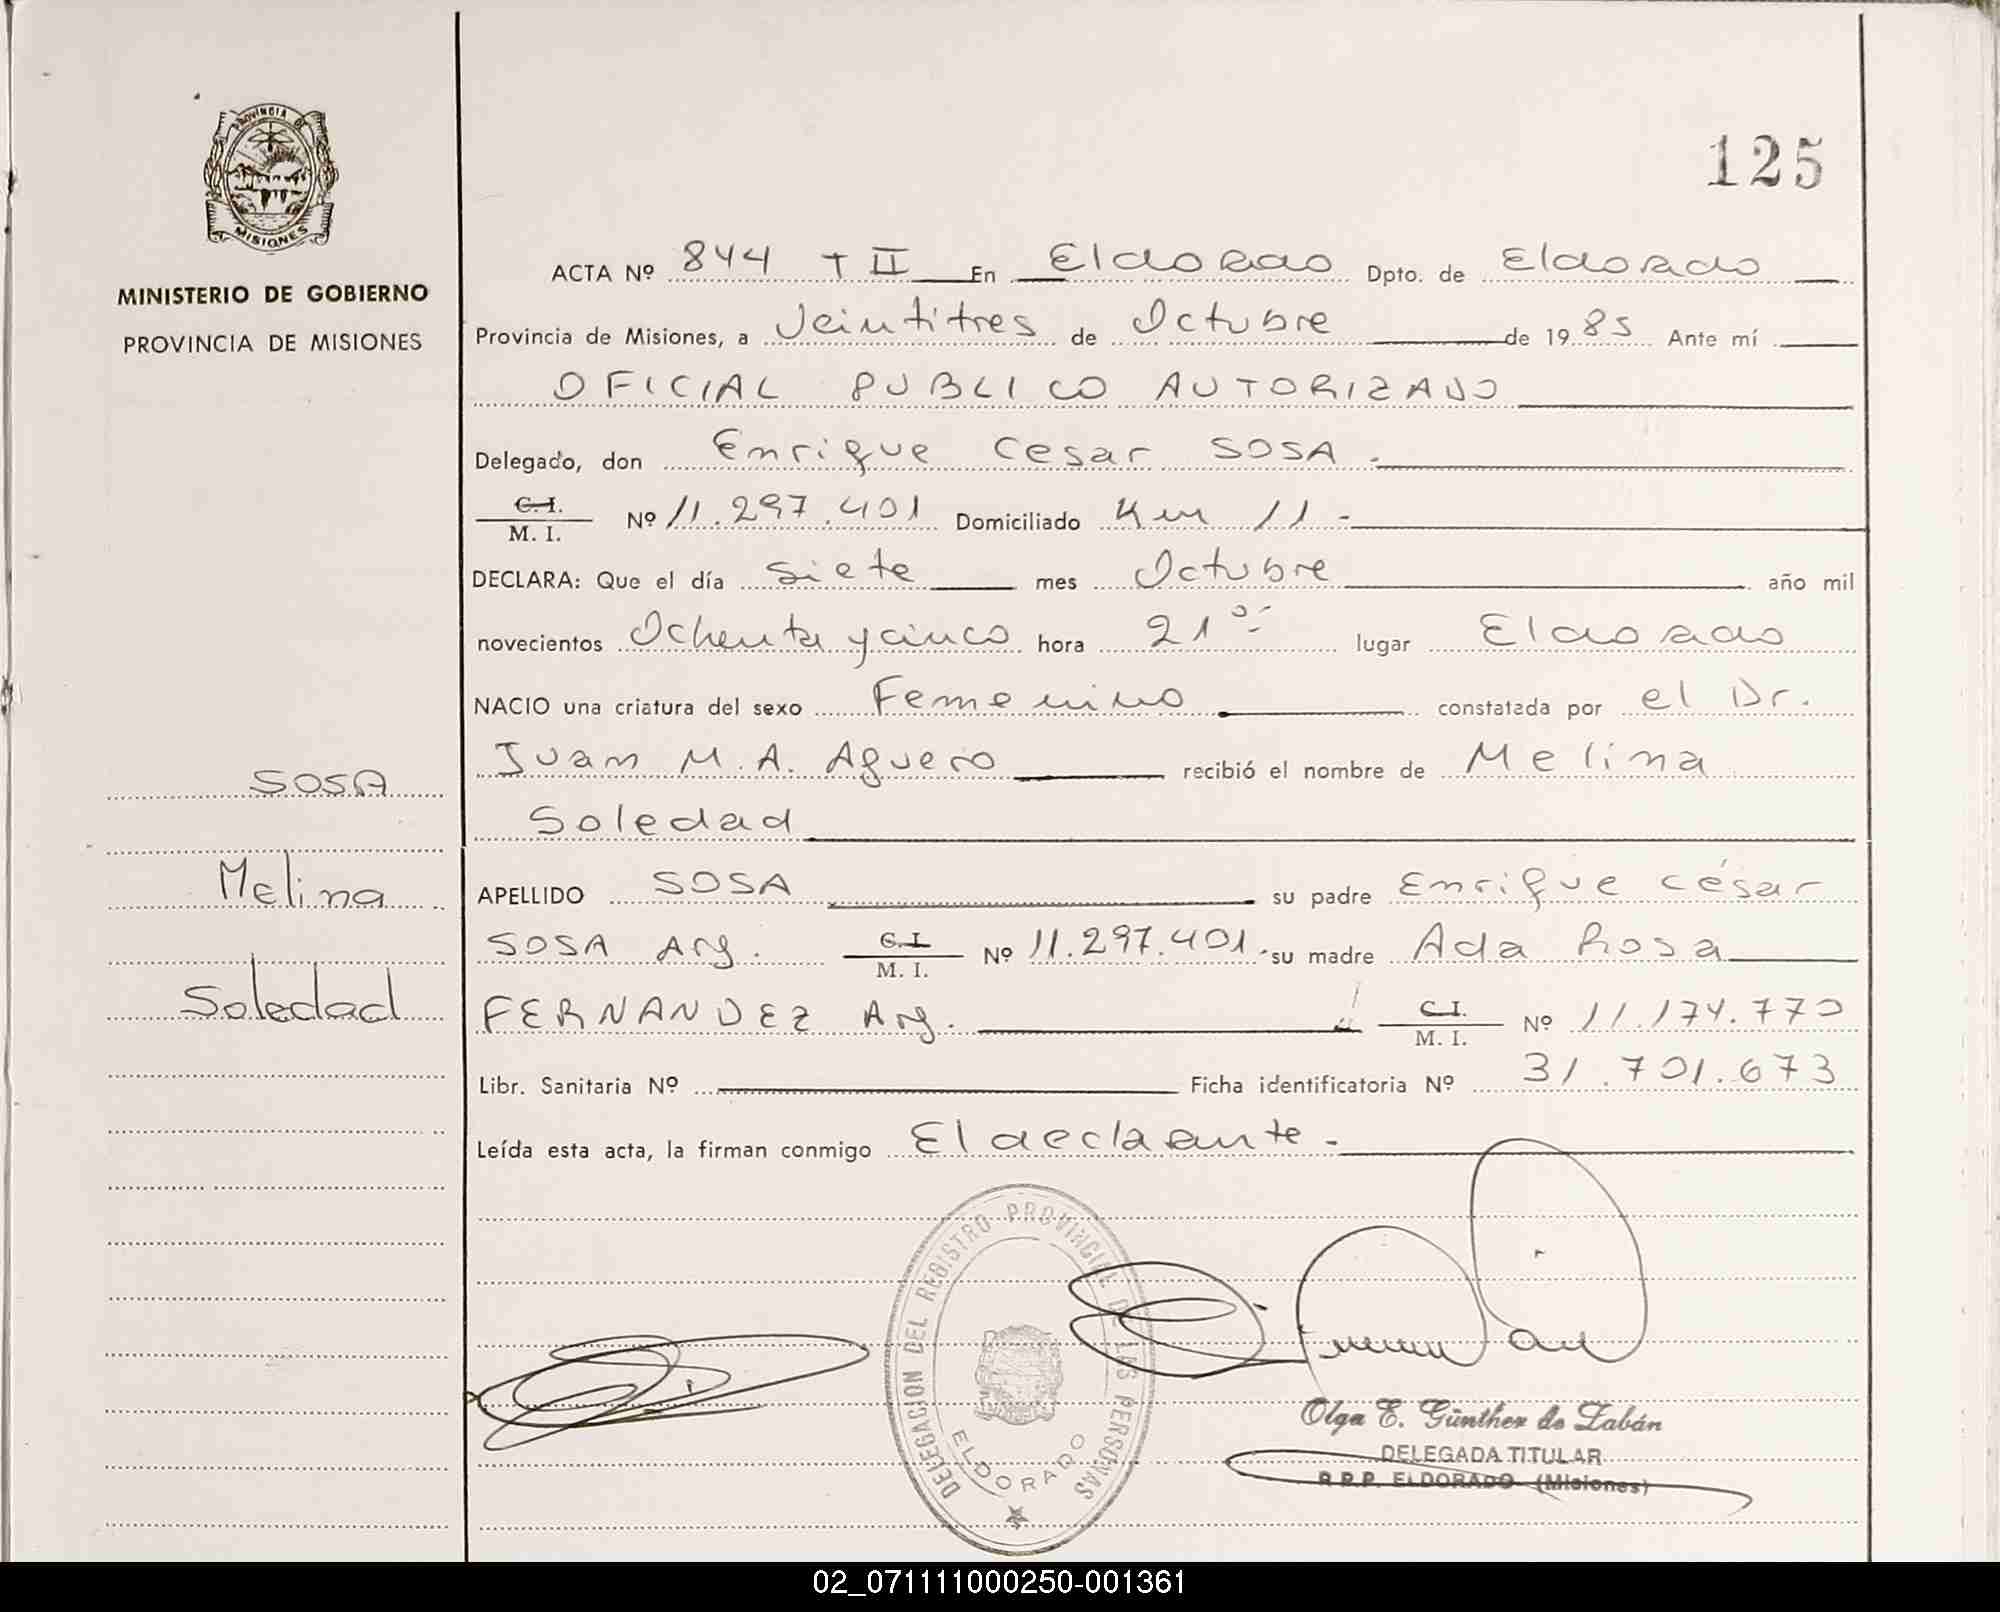 PROVINCIA DE
MISIONES
MINISTERIO DE GOBIERNO
PROVINCIA DE MISIONES
125
ACTA Nº 844 T II En Eldorado Dpto. de Eldorado
Provincia de Misiones, a Veintitres de Octubre de 1985 Ante mí
OFICIAL PUBLICO AUTORIZADO
Delegado, don Enrique Cesar SOSA.
C. I.
M. I. Nº 11.297.401 Domiciliado Km 11 -
DECLARA: Que el día Siete mes Octubre año mil
novecientos Ochenta y cinco hora 21 º- lugar Eldorado
NACIO una criatura del sexo Femenino constatada por el Dr.
Juan M. A. Aguero recibió el nombre de Melina
Soledad
SOSA
Melina
Soledad
APELLIDO SOSA su padre Enrique César
SOSA Arg. C. I. M. I. Nº 11.297.401.- su madre Ada Rosa
FERNANDEZ Arg. C. I. M. I. Nº 11.174.770
Libr. Sanitaria Nº Ficha identificatoria Nº 31.701.673
Leída esta acta, la firman conmigo El declarante -
DELEGACION DEL REGISTRO PROVINCIAL DE LAS PERSONAS
ELDORADO
Olga E. Günther de Zabán
DELEGADA TITULAR
R.P.P. ELDORADO (Misiones)
02_071111000250-001361